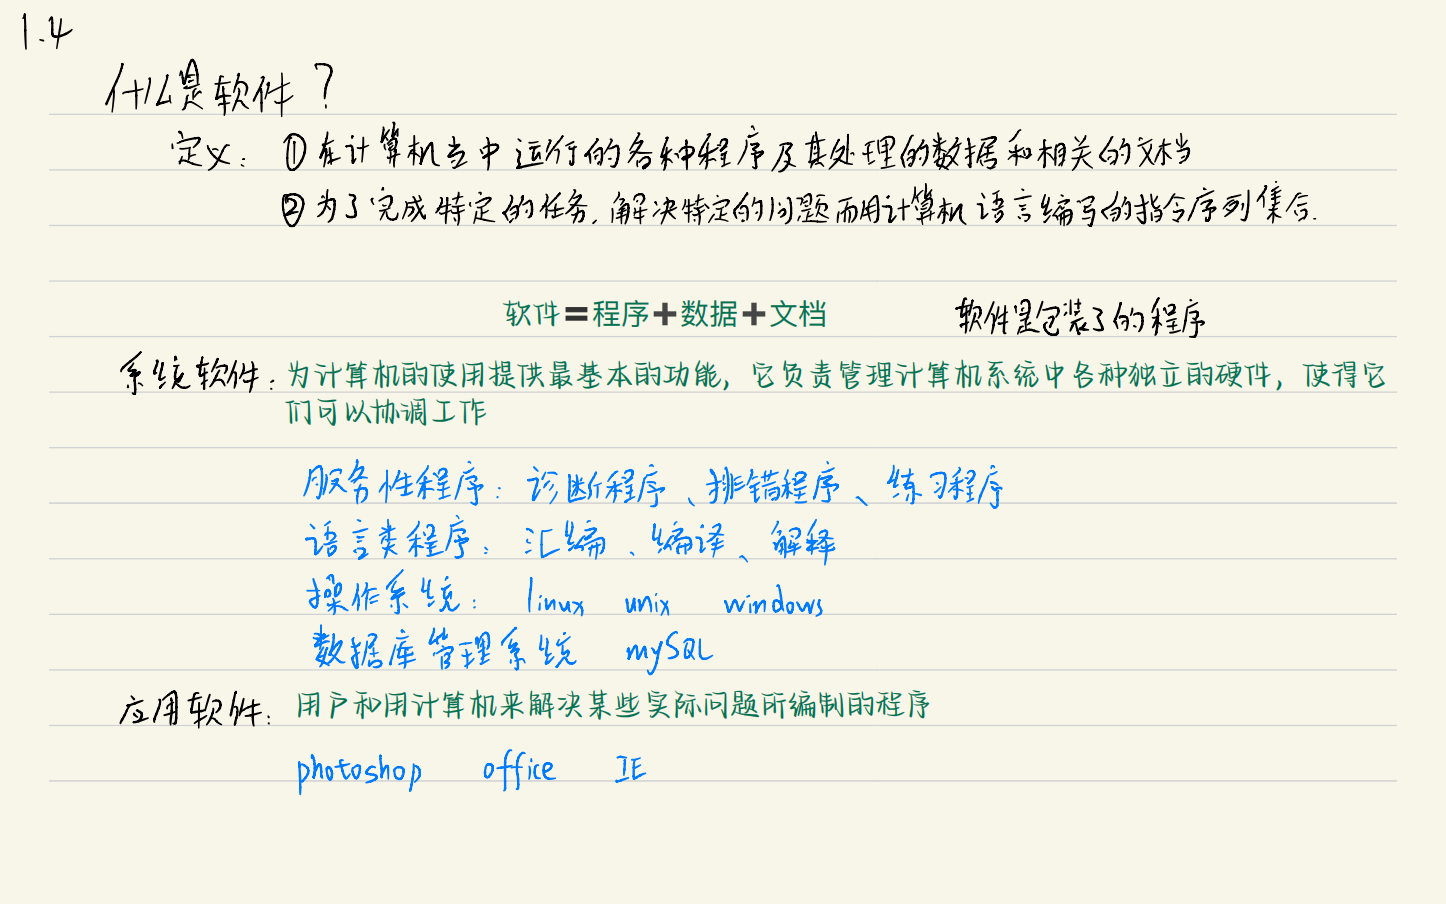 1.4
什么是软件？
定义：①在计算机当中运行的各种程序及其处理的数据和相关的文档
②为了完成特定的任务，解决特定的问题而用计算机语言编写的指令序列集合.
软件=程序+数据+文档 软件是包装了的程序
系统软件：为计算机的使用提供最基本的功能，它负责管理计算机系统中各种独立的硬件，使得它
们可以协调工作
服务性程序：诊断程序、排错程序、练习程序
语言类程序：汇编、编译、解释
操作系统：linux unix windows
数据库管理系统 mySQL
应用软件：用户和用计算机来解决某些实际问题所编制的程序
photoshop office IE